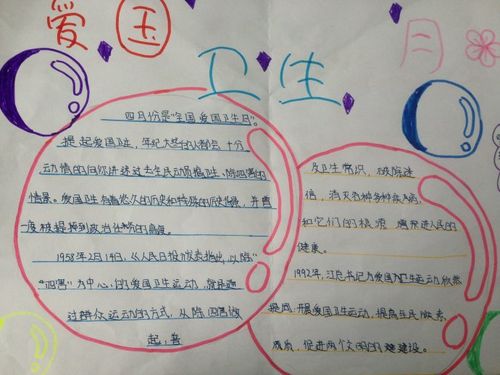 爱国
卫生
月
四月份是"全国爱国卫生月"。
提起爱国卫生,年纪大些的人都会十分
动情的向你讲述过去全民动员搞卫生、除四害的
情景。爱国卫生有着悠久的历史和特殊的历史
一度被提到政治任务的高度。
1958年2月14日,《人民日报》发表指出,以除
"四害"为中心的爱国卫生运动,就是通
过群众运动的方式,从除四害做
起,普
及卫生常识,破除迷
信,消灭各种多种疾病
和它们的根源,增进人民的
健康。
1992年,江总书记为爱国卫生运动欣然
提词:开展爱国卫生运动,提高全民族素
质,促进两个文明的建设。